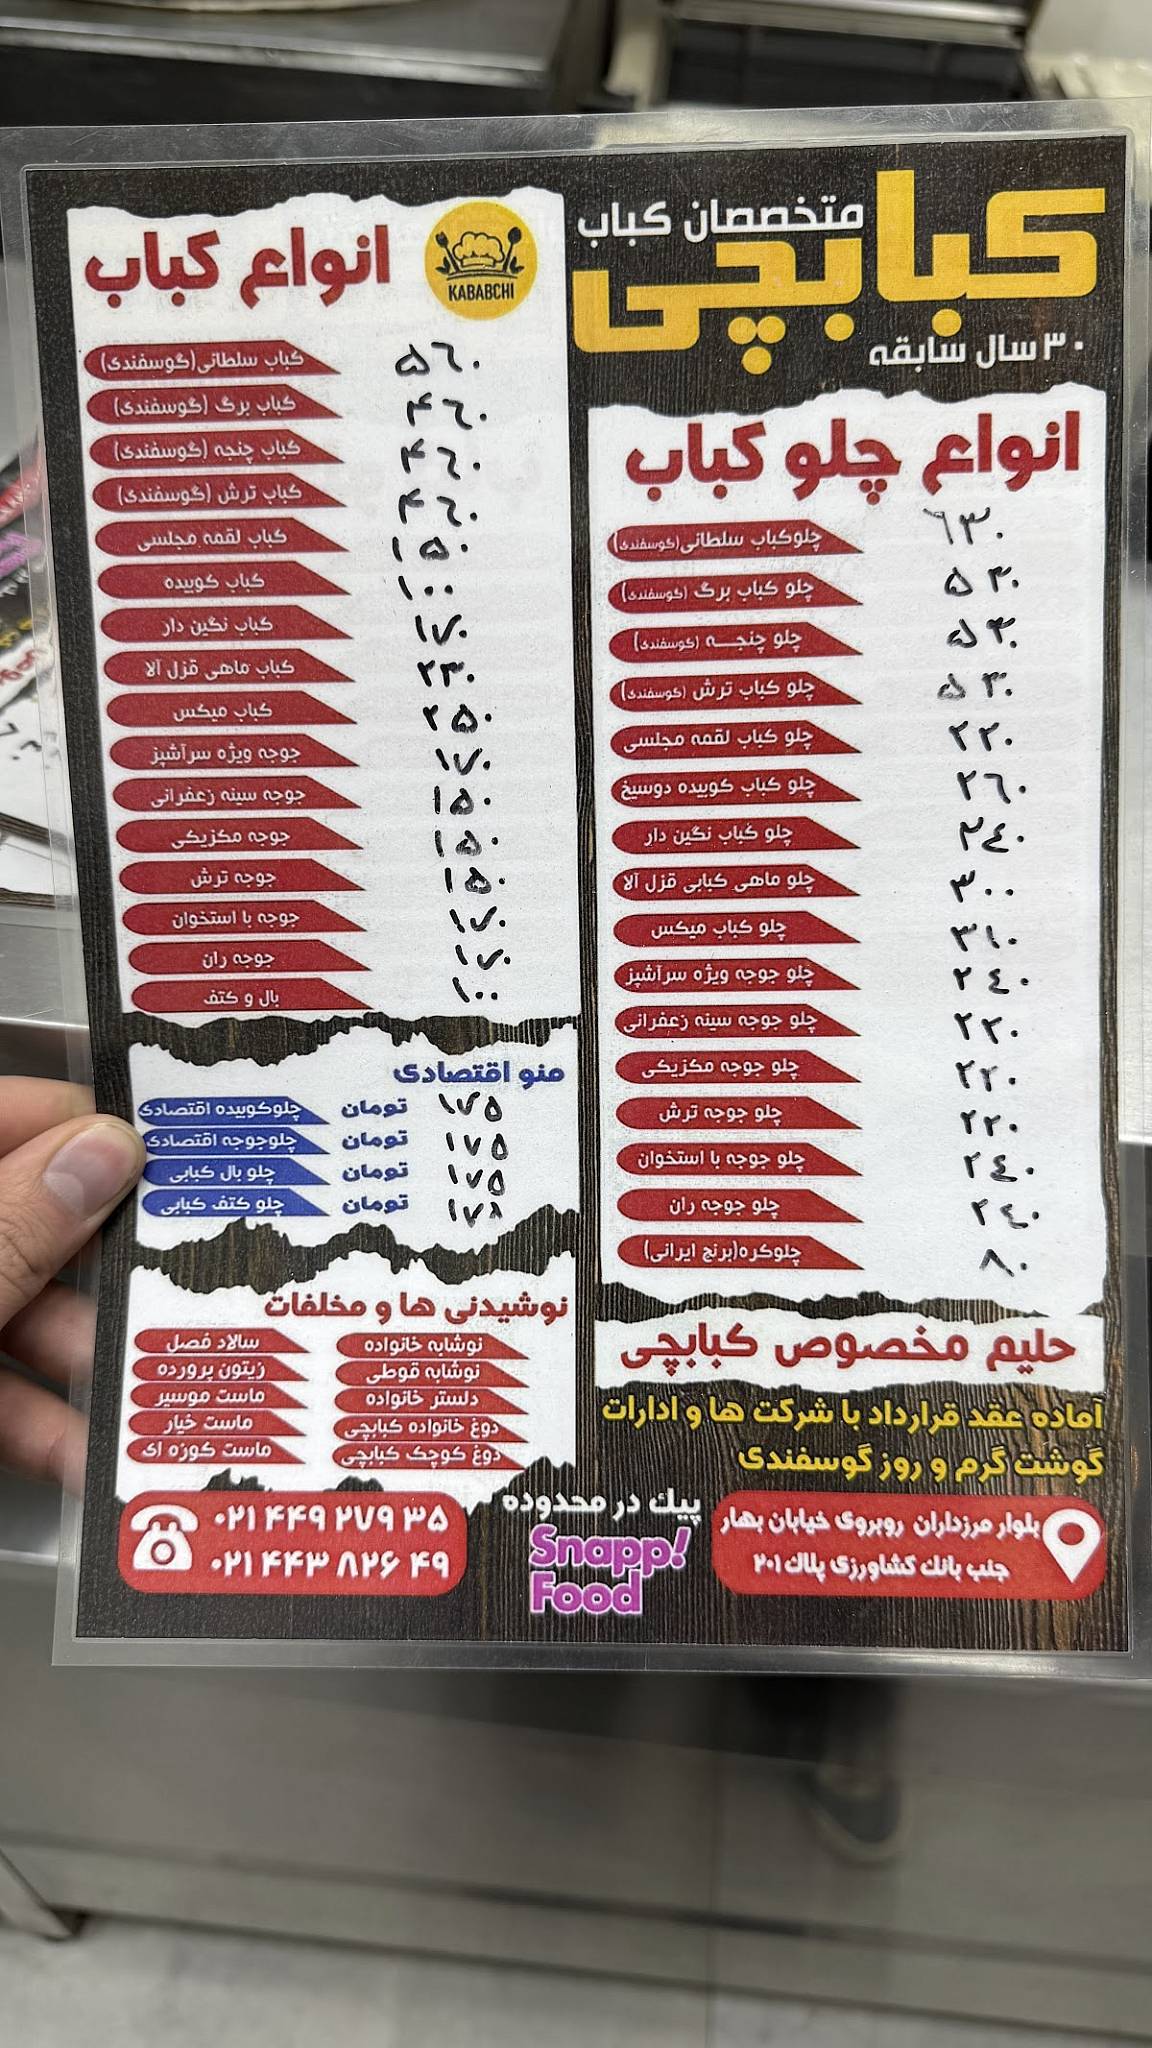 کبابچی
متخصصان کباب
۳۰ سال سابقه
KABABCHI
انواع چلو کباب
چلوکباب سلطانی(گوسفندی) ۶۳۰
چلو کباب برگ (گوسفندی) ۵۳۰
چلو چنجــه (گوسفندی) ۵۳۰
چلو کباب ترش (گوسفندی) ۵۳۰
چلو کباب لقمه مجلسی ۲۲۰
چلو کباب کوبیده دوسیخ ۲۶۰
چلو کباب نگین دار ۲۴۰
چلو ماهی کبابی قزل آلا ۳۰۰
چلو کباب میکس ۳۱۰
چلو جوجه ویژه سرآشپز ۲۴۰
چلو جوجه سینه زعفرانی ۲۲۰
چلو جوجه مکزیکی ۲۲۰
چلو جوجه ترش ۲۲۰
چلو جوجه با استخوان ۲۴۰
چلو جوجه ران ۲۴۰
چلوکره(برنج ایرانی) ۸۰
حلیم مخصوص کبابچی
آماده عقد قرارداد با شرکت ها و ادارات
گوشت گرم و روز گوسفندی
بلوار مرزداران روبروی خیابان بهار
جنب بانك کشاورزی پلاك ۲۰۱
انواع کباب
کباب سلطانی(گوسفندی) ۵۶۰
کباب برگ (گوسفندی) ۴۶۰
کباب چنجه (گوسفندی) ۴۶۰
کباب ترش (گوسفندی) ۴۶۰
کباب لقمه مجلسی ۱۵۰
کباب کوبیده ۱۰۰
کباب نگین دار ۱۷۰
کباب ماهی قزل آلا ۲۳۰
کباب میکس ۲۵۰
جوجه ویژه سرآشپز ۱۷۰
جوجه سینه زعفرانی ۱۵۰
جوجه مکزیکی ۱۵۰
جوجه ترش ۱۵۰
جوجه با استخوان ۱۷۰
جوجه ران ۱۷۰
بال و کتف ۱۰۰
منو اقتصادی
چلوکوبیده اقتصادی تومان ۱۷۵
چلوجوجه اقتصادی تومان ۱۷۵
چلو بال کبابی تومان ۱۷۵
چلو کتف کبابی تومان
نوشیدنی ها و مخلفات
نوشابه خانواده سالاد فصل
نوشابه قوطی زیتون پرورده
دلستر خانواده ماست موسیر
دوغ خانواده کبابچی ماست خیار
دوغ کوچک کبابچی ماست کوزه ای
پیك در محدوده
Snapp!
Food
۰۲۱ ۴۴۹ ۲۷۹ ۳۵
۰۲۱ ۴۴۳ ۸۲۶ ۴۹